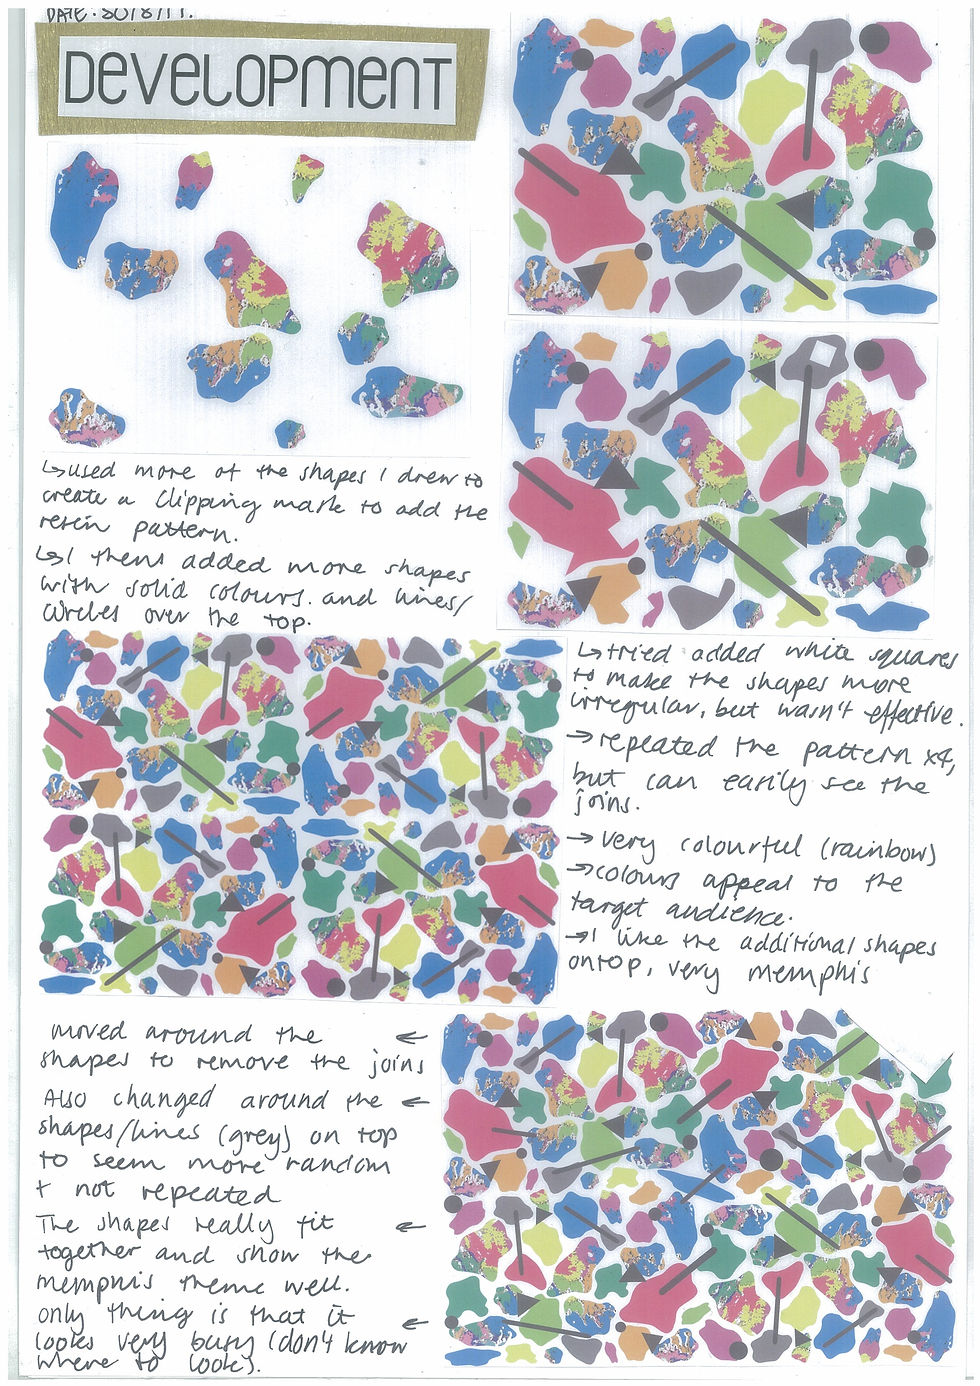 DATE: 30/8/17.
DEVELOPMENT
↳ used more of the shapes I drew to
create a clipping mask to add the
resin pattern.
↳ I thens added more shapes
with solid colours. and lines/
circles over the top.
↳ tried added white squares
to make the shapes more
irregular, but wasn't effective.
→ repeated the pattern x4,
but can easily see the
joins.
→ very colourful (rainbow)
→ colours appeal to the
target audience.
→ I like the additional shapes
ontop, very memphis
moved around the ←
shapes to remove the joins
Also changed around the ←
shapes/lines (grey) on top
to seem more random
+ not repeated
The shapes really fit ←
together and show the
memphis theme well.
only thing is that it ←
looks very busy (don't know
where to look).